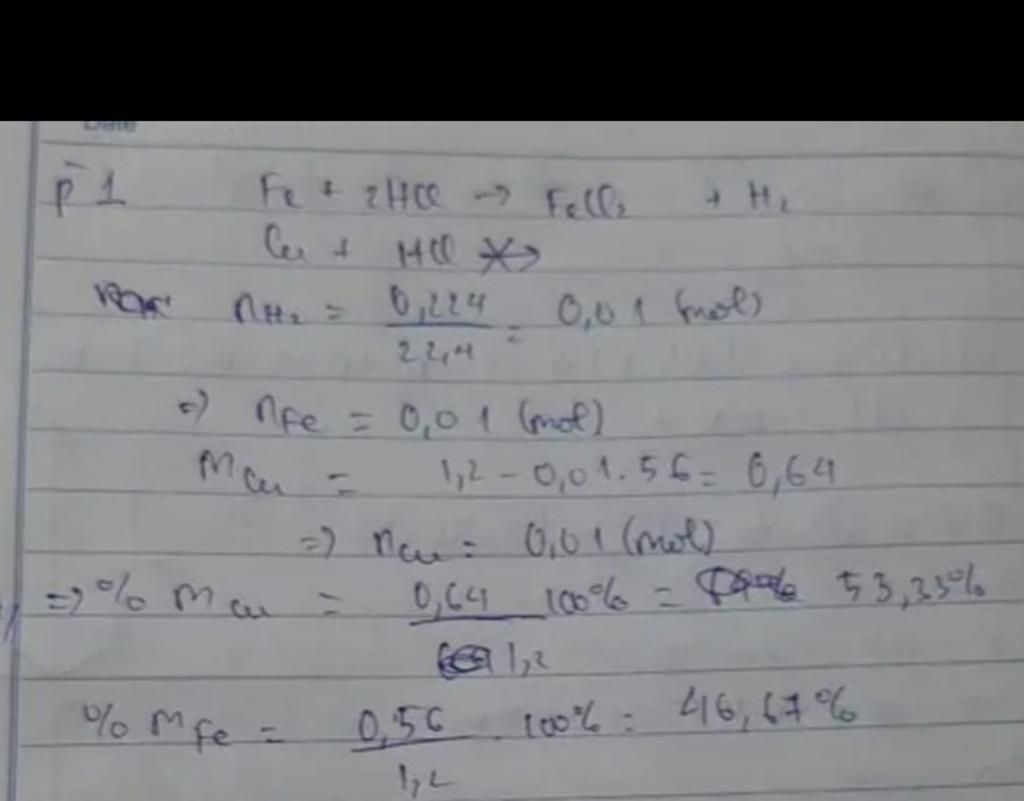 Date
P 1 Fe + 2HCl → FeCl₂ + H₂
Cu + HCl ↛
nH₂ = 0,224/22,4 = 0,01 (mol)
=> nFe = 0,01 (mol)
mCu = 1,2 - 0,01.56 = 0,64
=> nCu = 0,01 (mol)
=> % mCu = 0,64/1,2 100% = 53,33%
% mFe = 0,56/1,2 . 100% = 46,67%